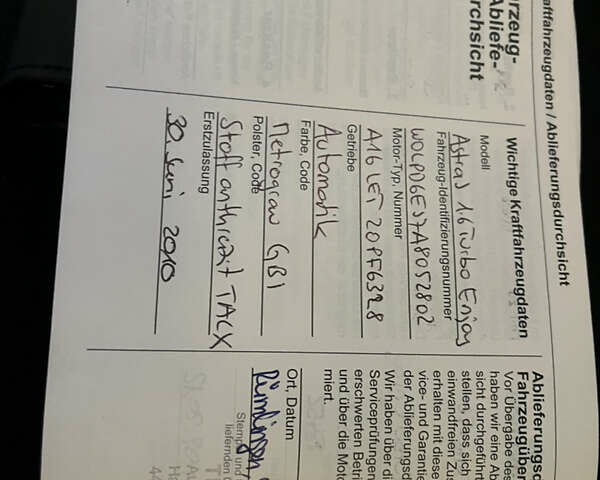 raftfahrzeugdaten / Ablieferungsdurchsicht
rzeug-
Abliefe-
rchsicht
Wichtige Kraftfahrzeugdaten
Modell
Astra J 1.6 Turbo Enjoy
Fahrzeug-Identifizierungsnummer
W0LPD6EJ7A8052802
Motor-Typ, Nummer
A16 LET 20PF6328
Getriebe
Automatik
Farbe, Code
Metrograu GBI
Polster, Code
Stoff anthrazit TACX
Erstzulassung
30. Juni 2010
Ablieferungsd
Fahrzeugüber
Vor Übergabe des
haben wir eine Ab
sicht durchgeführt
stellen, dass sich
einwandfreien Zus
erhalten mit diese
vice- und Garantie
der Ablieferungsd
Wir haben über di
Serviceprüfungen
erschwerten Betri
und über die Mot
miert.
Ort, Datum
Rümlingen
Stempel und
liefernden